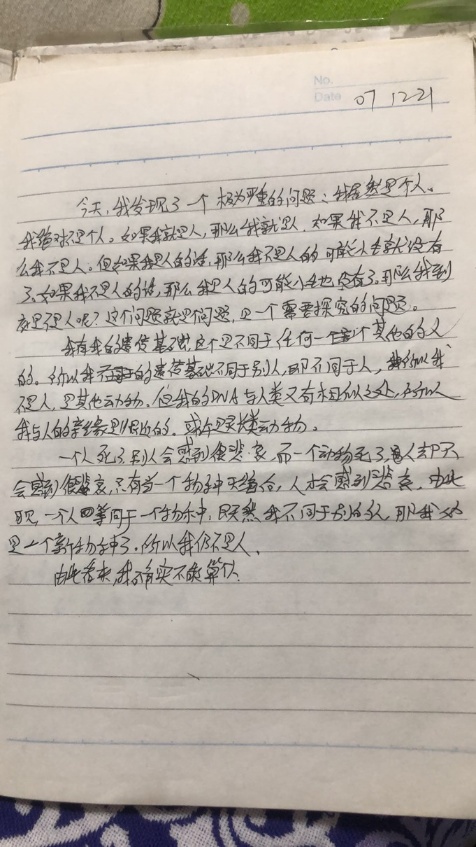 No.
Date 07 12 21
今天,我发现了一个极为严重的问题:我居然是个人。
我绝对不是个人。如果我就是人,那么我就是人,如果我不是人,那
么我不是人。但如果我是人的话,那么我不是人的可能性也就没有
了,如果我不是人的话,那么我是人的可能性也没有了,那么我到
底是不是人呢?这个问题就是问题,是一个需要探究的问题。
我有我的遗传基础,这个是不同于任何一个其他的人
的。所以我的遗传基础不同于别人,即不同于人,所以我
不是人,是其他动物。但我的DNA与人类又有相似之处,所以
我与人的亲缘是很近的。或许是灵长类动物。
一个人死了,别人会感到很悲哀,而一个动物死了,人却不
会感到很悲哀,只有当一个物种灭绝后,人才会感到悲哀。由此
可见,一个人等同于一个物种,既然我不同于别的人,那我就
是一个新物种了,所以我仍不是人。
由此看来,我确实不能算人。